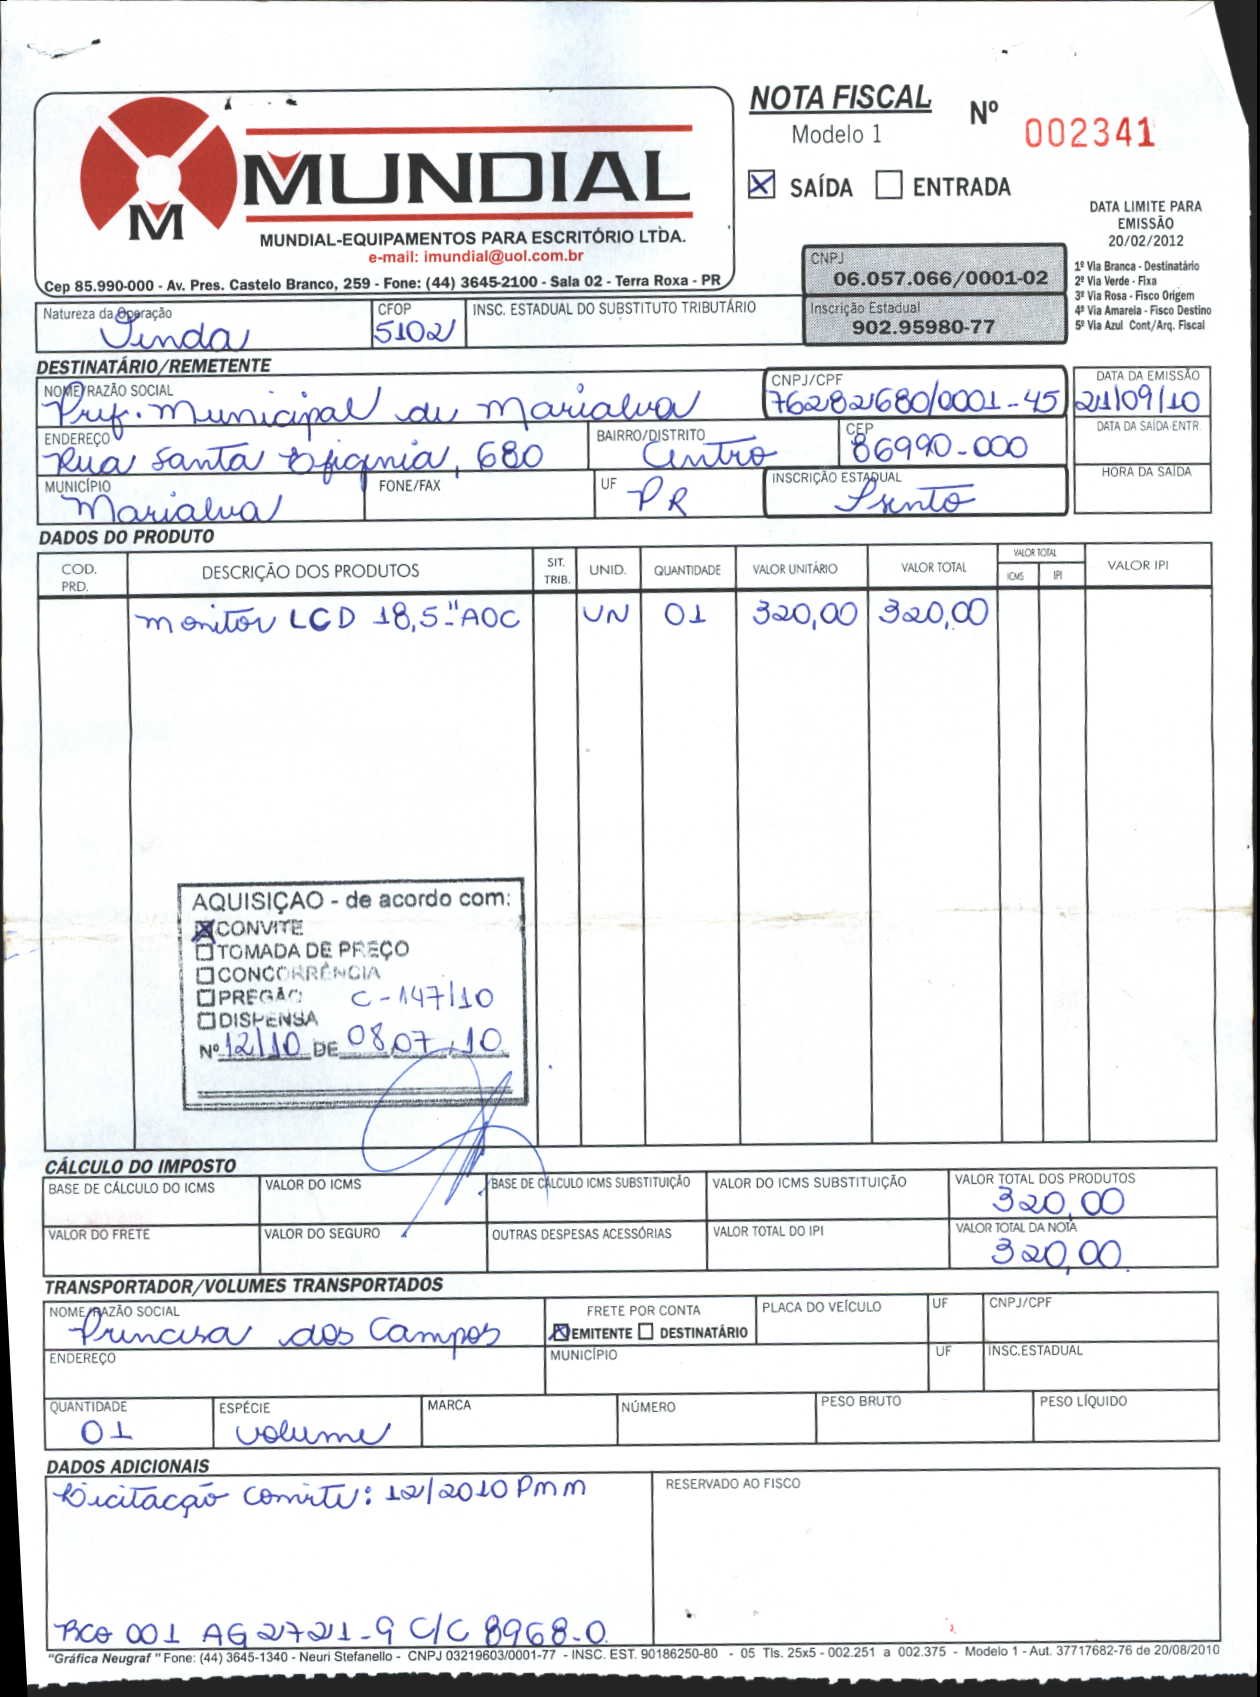 NOTA FISCAL
Modelo 1
Nº 002341
X SAÍDA ENTRADA
M
MUNDIAL
MUNDIAL-EQUIPAMENTOS PARA ESCRITÓRIO LTDA.
e-mail: imundial@uol.com.br
Cep 85.990-000 - Av. Pres. Castelo Branco, 259 - Fone: (44) 3645-2100 - Sala 02 - Terra Roxa - PR
DATA LIMITE PARA
EMISSÃO
20/02/2012
CNPJ
06.057.066/0001-02
Inscrição Estadual
902.95980-77
1ª Via Branca - Destinatário
2ª Via Verde - Fixa
3ª Via Rosa - Fisco Origem
4ª Via Amarela - Fisco Destino
5ª Via Azul Cont/Arq. Fiscal
Natureza da Operação
Venda
CFOP
5102
INSC. ESTADUAL DO SUBSTITUTO TRIBUTÁRIO
DESTINATÁRIO/REMETENTE
NOME/RAZÃO SOCIAL
Pref. Municipal de Marialva
CNPJ/CPF
76282680/0001-45
DATA DA EMISSÃO
21/09/10
ENDEREÇO
Rua Santa Efigenia, 680
BAIRRO/DISTRITO
Centro
CEP
86990-000
DATA DA SAÍDA ENTR.
MUNICÍPIO
Marialva
FONE/FAX
UF
PR
INSCRIÇÃO ESTADUAL
Isento
HORA DA SAÍDA
DADOS DO PRODUTO
COD. PRD. DESCRIÇÃO DOS PRODUTOS SIT. TRIB. UNID. QUANTIDADE VALOR UNITÁRIO VALOR TOTAL VALOR TOTAL ICMS IPI VALOR IPI
Monitor LCD 18,5" AOC UN 01 320,00 320,00
AQUISIÇAO - de acordo com:
X CONVITE
TOMADA DE PREÇO
CONCORRÊNCIA
PREGÃO C-147/10
DISPENSA
Nº 12/10 DE 08,07,10
CÁLCULO DO IMPOSTO
BASE DE CÁLCULO DO ICMS VALOR DO ICMS BASE DE CÁLCULO ICMS SUBSTITUIÇÃO VALOR DO ICMS SUBSTITUIÇÃO VALOR TOTAL DOS PRODUTOS
320,00
VALOR DO FRETE VALOR DO SEGURO OUTRAS DESPESAS ACESSÓRIAS VALOR TOTAL DO IPI VALOR TOTAL DA NOTA
320,00
TRANSPORTADOR/VOLUMES TRANSPORTADOS
NOME/RAZÃO SOCIAL
Princesa dos Campos
FRETE POR CONTA
X EMITENTE DESTINATÁRIO
PLACA DO VEÍCULO UF CNPJ/CPF
ENDEREÇO MUNICÍPIO UF INSC.ESTADUAL
QUANTIDADE ESPÉCIE MARCA NÚMERO PESO BRUTO PESO LÍQUIDO
01 volume
DADOS ADICIONAIS
RESERVADO AO FISCO
Licitação Convite: 12/2010 PMM
BCO 001 AG 2721-9 C/C 8968-0
"Gráfica Neugraf" Fone: (44) 3645-1340 - Neuri Stefanello - CNPJ 03219603/0001-77 - INSC. EST. 90186250-80 - 05 Tls. 25x5 - 002.251 a 002.375 - Modelo 1 - Aut. 37717682-76 de 20/08/2010